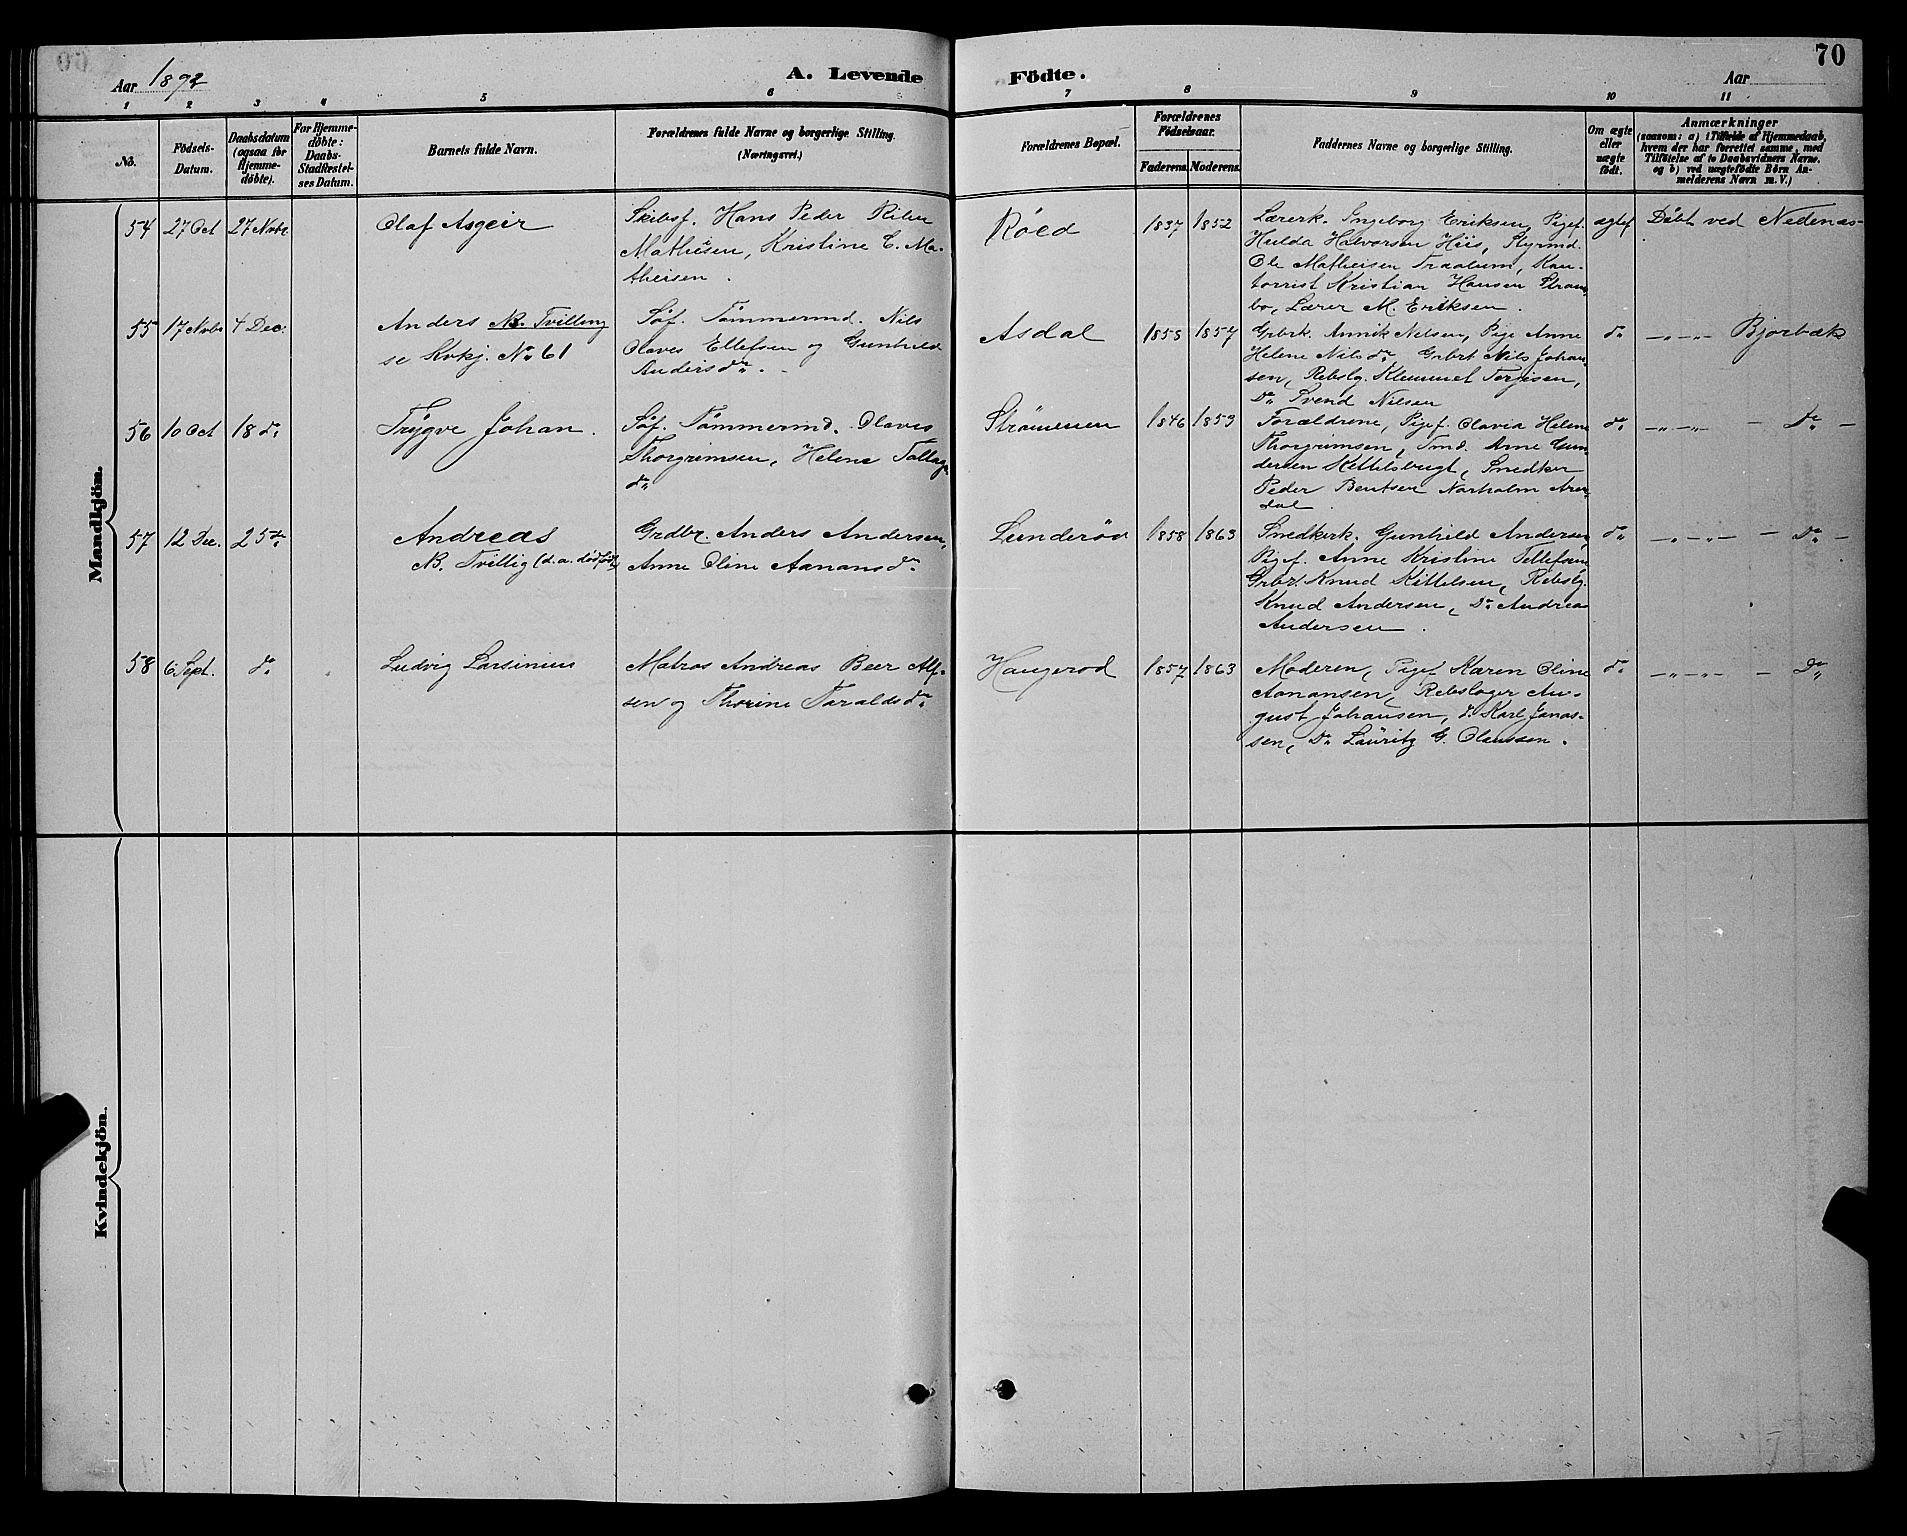 70
Aar 1892
A. Levende Födte.
Aar
1 2 3 4 5 6 7 8 9 10 11
No.
Födsels-Datum.
Daabsdatum (ogsaa for Hjemme-döbte).
For Hjemme-döbte: Daabs-Stadfæstel-ses Datum.
Barnets fulde Navn.
Forældrenes fulde Navne og borgerlige Stilling.
(Næringsvei.)
Forældrenes Bopæl.
Forældrenes Födselsaar.
Faderens. Moderens.
Faddernes Navne og borgerlige Stilling.
Om ægte eller uægte födt.
Anmærkninger
(saasom: a) i Tilfælde af Hjemmedaab,
hvem der har forrettet samme, med
Tilföielse af to Daabsvidners Navne.
og b) ved uægtefödte Börn An-
melderens Navn m. V.)
Mandkjön.
54 27 Oct 27 Novbr.
Olaf Asgeir
Skibsf. Hans Peder
Mathisen, Kristine E. Ma-
theisen.
Röed
1837 1852
Lærerk. Ingeborg Eriksen, Pigef.
Hulda Halvorsen Hiis, Styrmd.
Ole Matheisen Traalum, Kon-
torrist Kristian Hansen Strøm-
bo, Lærer M. Eriksen.
ægtef
Döbt ved Nedenæs-
55 17 Novbr 4 Dec.
Anders NB. Tvilling
se Kvkj. No 61
Söf. Tömmermd. Nils
Olaves Ellefsen og Gunhild
Andersdr.
Asdal
1853 1857
Grbrk. Annik Nelsen, Pige Anne
Helene Nilsdr, Grbr. Nils Johan-
sen, Rebslg. Klemmet Terjisen,
Do Svend Nilsen
do
-"-"- Bjorbæk
56 10 Oct 18 do
Trygve Johan.
Söf. Tömmermd. Olaves
Thorgrimsen, Helene Tallags-
dr
Strömmen
1846 1859
Forældrene, Pigef. Olavia Helene
Thorgrimsen, Tmd. Arne Gun-
dersen Kittelsbugt, Snedker
Peder Bentsen Narholm Aren-
dal.
do
-"-"- - Do -
57 12 Dec. 25 do
Andreas
NB. Tvillig (d. a. dödfödt)
Grdbr. Anders Andersen,
Anne Oline Aanansdr
Lunderöd
1858 1863
Smedkerk. Gunhild Andersen,
Pigef. Anne Kristine Tellefsen
Grbr. Knud Kittelsen, Rebslg.
Knud Andersen, Do Andreas
Andersen.
do
-"-"- - Do -
58 6 Sept. do
Ludvig Larsinius
Matros Andreas Beer Alf-
sen og Thorine Taraldsdr
Haugerod
1857 1863
Moderen, Pigef Karen Oline
Aanansen, Rebslager Au-
gust Johansen, do Karl Jonas-
sen, Do Lauritz G. Olaussen.
do
-"-"- - Do
Kvindekjön.